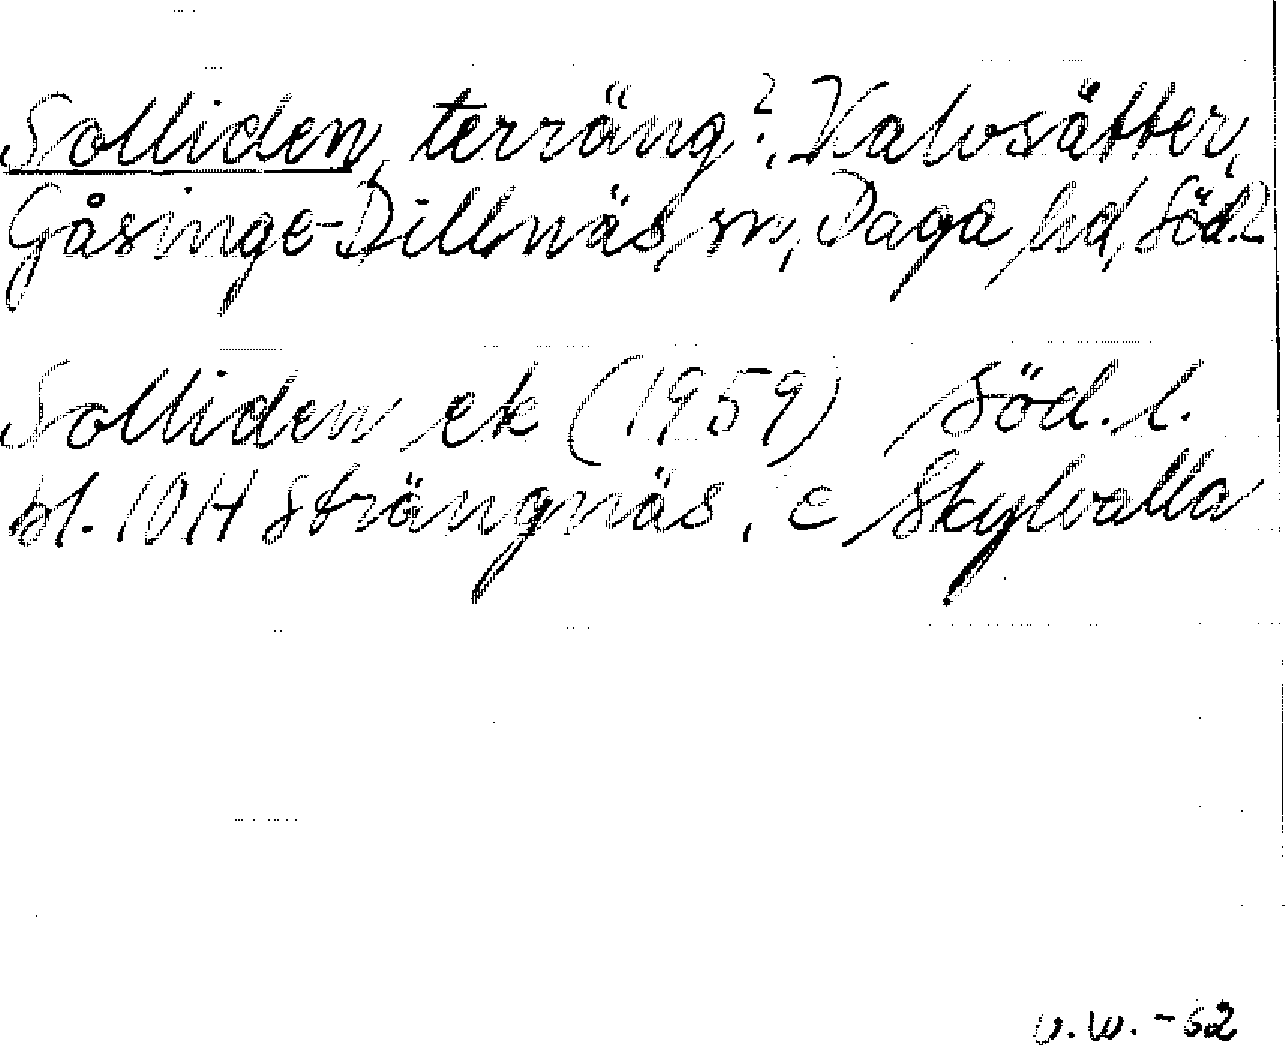 Solliden, terräng?, Kalvsätter,
Gåsinge-Dillnäs sn, Daga hd, Söd.l.
Solliden ek (1959) Söd. l.
bl. 10H Strängnäs, c Skylvalla
v.w. -62